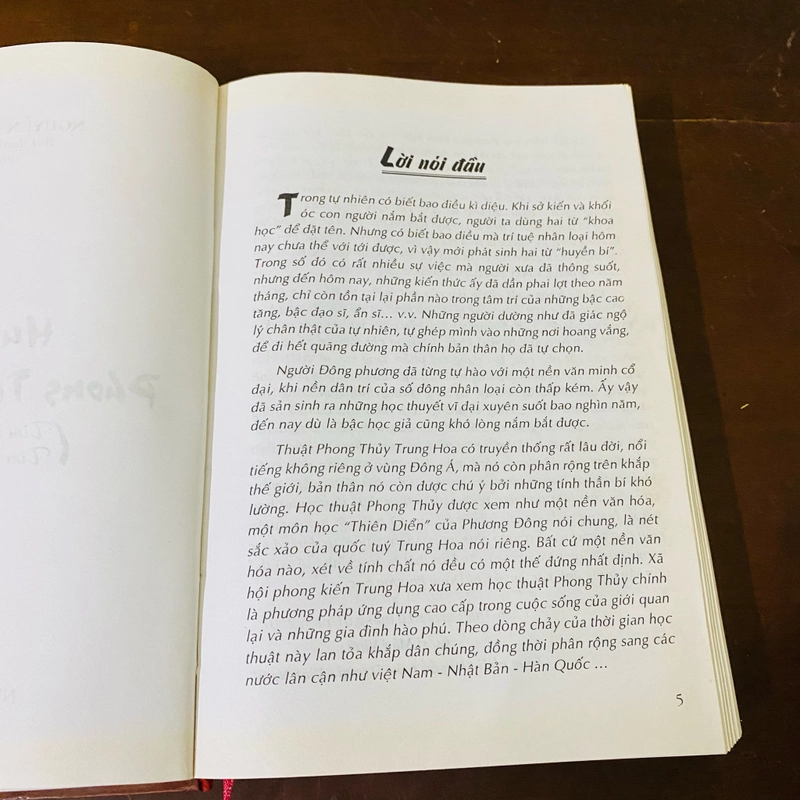 Lời nói đầu
Trong tự nhiên có biết bao điều kì diệu. Khi sở kiến và khối
óc con người nắm bắt được, người ta dùng hai từ “khoa
học” để đặt tên. Nhưng có biết bao điều mà trí tuệ nhân loại hôm
nay chưa thể với tới được, vì vậy mới phát sinh hai từ “huyền bí”.
Trong số đó có rất nhiều sự việc mà người xưa đã thông suốt,
nhưng đến hôm nay, những kiến thức ấy đã dần phai lợt theo năm
tháng, chỉ còn tồn tại lại phần nào trong tâm trí của những bậc cao
tăng, bậc đạo sĩ, ẩn sĩ... v.v. Những người dường như đã giác ngộ
lý chân thật của tự nhiên, tự ghép mình vào những nơi hoang vắng,
để đi hết quãng đường mà chính bản thân họ đã tự chọn.
Người Đông phương đã từng tự hào với một nền văn minh cổ
đại, khi nền dân trí của số đông nhân loại còn thấp kém. Ấy vậy
đã sản sinh ra những học thuyết vĩ đại xuyên suốt bao nghìn năm,
đến nay dù là bậc học giả cũng khó lòng nắm bắt được.
Thuật Phong Thủy Trung Hoa có truyền thống rất lâu đời, nổi
tiếng không riêng ở vùng Đông Á, mà nó còn phân rộng trên khắp
thế giới, bản thân nó còn được chú ý bởi những tính thần bí khó
lường. Học thuật Phong Thủy được xem như một nền văn hóa,
một môn học “Thiên Diển” của Phương Đông nói chung, là nét
sắc xảo của quốc tuý Trung Hoa nói riêng. Bất cứ một nền văn
hóa nào, xét về tính chất nó đều có một thế đứng nhất định. Xã
hội phong kiến Trung Hoa xưa xem học thuật Phong Thủy chính
là phương pháp ứng dụng cao cấp trong cuộc sống của giới quan
lại và những gia đình hào phú. Theo dòng chảy của thời gian học
thuật này lan tỏa khắp dân chúng, đồng thời phân rộng sang các
nước lân cận như việt Nam - Nhật Bản - Hàn Quốc ...
5